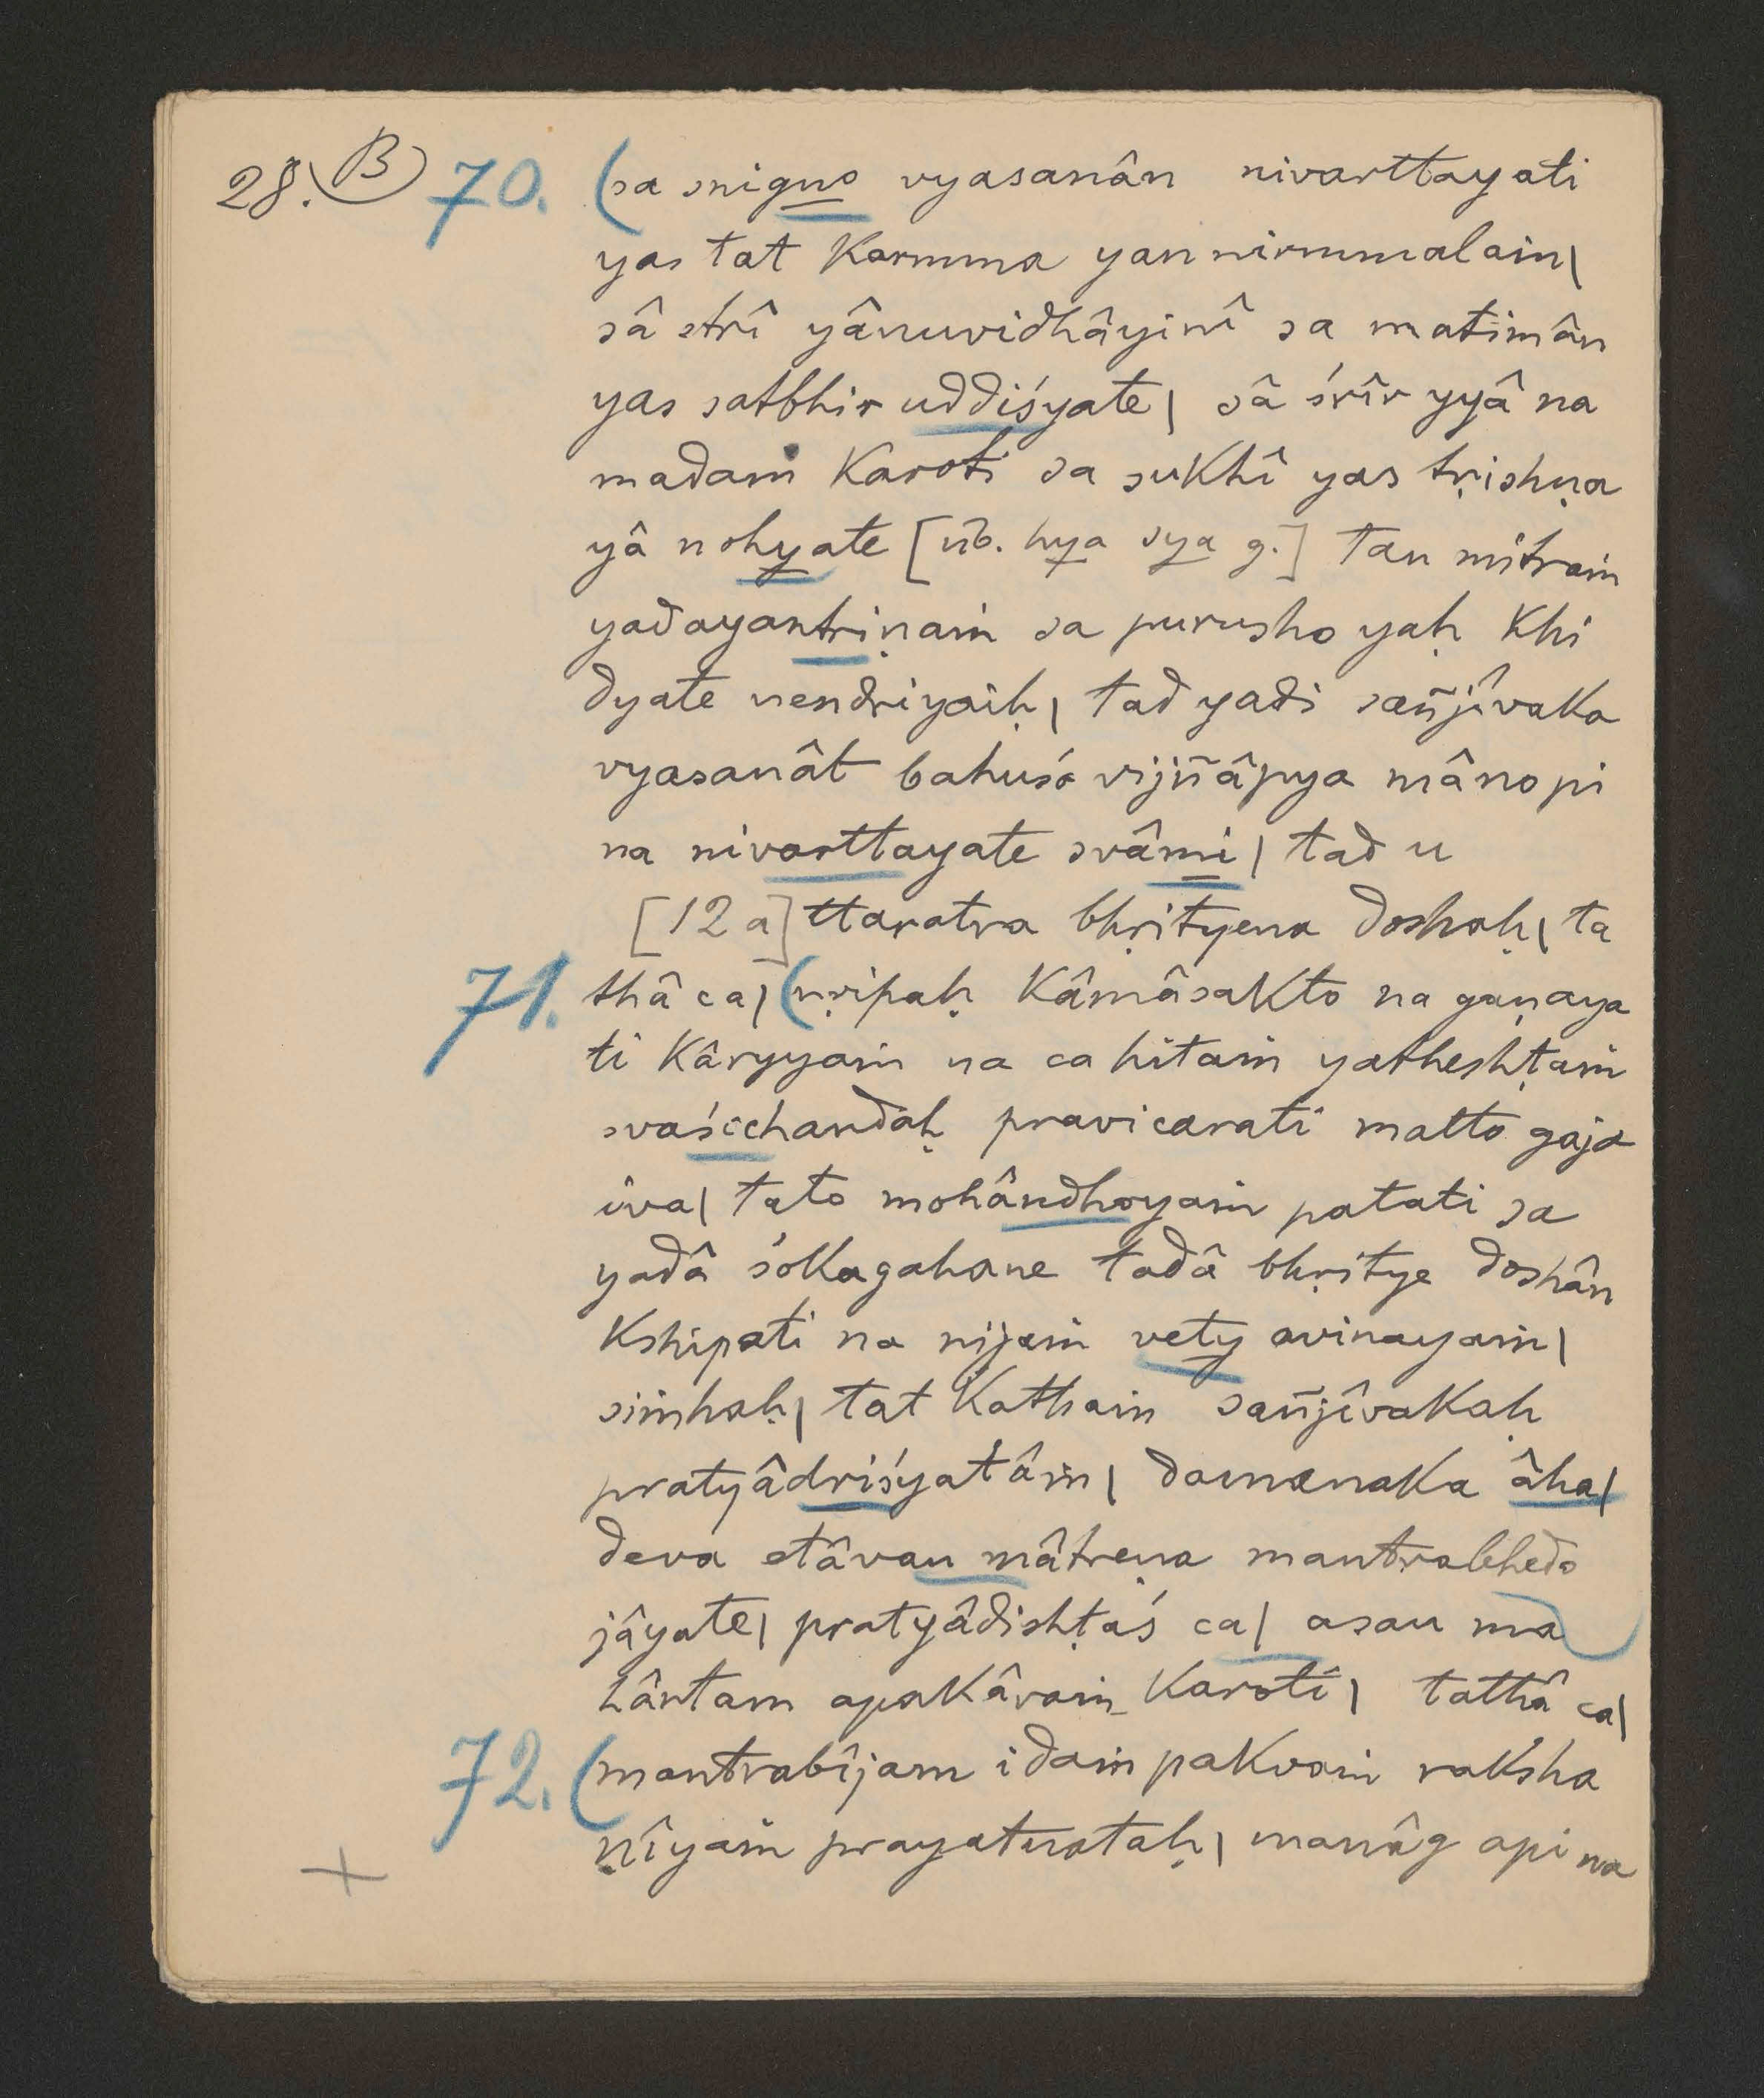 28. B 70. (sa snigno vyasanân nivarttayati
yas tat karmma yan nirmmalaṁ|
sâ strî yânuvidhâyinî sa matimân
yas satbhir uddiśyate| sâ śrîr yyâ na
madaṁ karoti sa sukhî yas tṛishṇa
yâ nohyate [üb. hya sya g.] tan mitraṁ
yadayantriṇaṁ sa purusho yaḥ khi
dyate nendriyaiḥ| tad yadi sañjîvaka
vyasanât bahuśo vijñâpya mânopi
na nivarttayate svâmi| tad u
[12 a] ttaratra bhṛityena doshaḥ| ta
71. thâ ca| (nṛipaḥ kâmâsakto na gaṇaya
ti kâryyaṁ na ca hitaṁ yatheshṭaṁ
svaścchandaḥ pravicarati matto gaja
iva| tato mohândhoyaṁ patati sa
yadâ śokagahane tadâ bhṛitye doshân
kshipati na nijaṁ vety avinayaṁ|
siṁhaḥ| tat kathaṁ sañjîvakaḥ
pratyâdriśyatâṁ| damanaka âha|
deva etâvan mâtreṇa mantrabhedo
jâyate| pratyâdishṭaś ca| asau ma
hântam apakâraṁ karoti| tathâ ca|
72. (mantrabîjam idaṁ pakvaṁ raksha
ṇîyaṁ prayatnataḥ| manâg api na
+